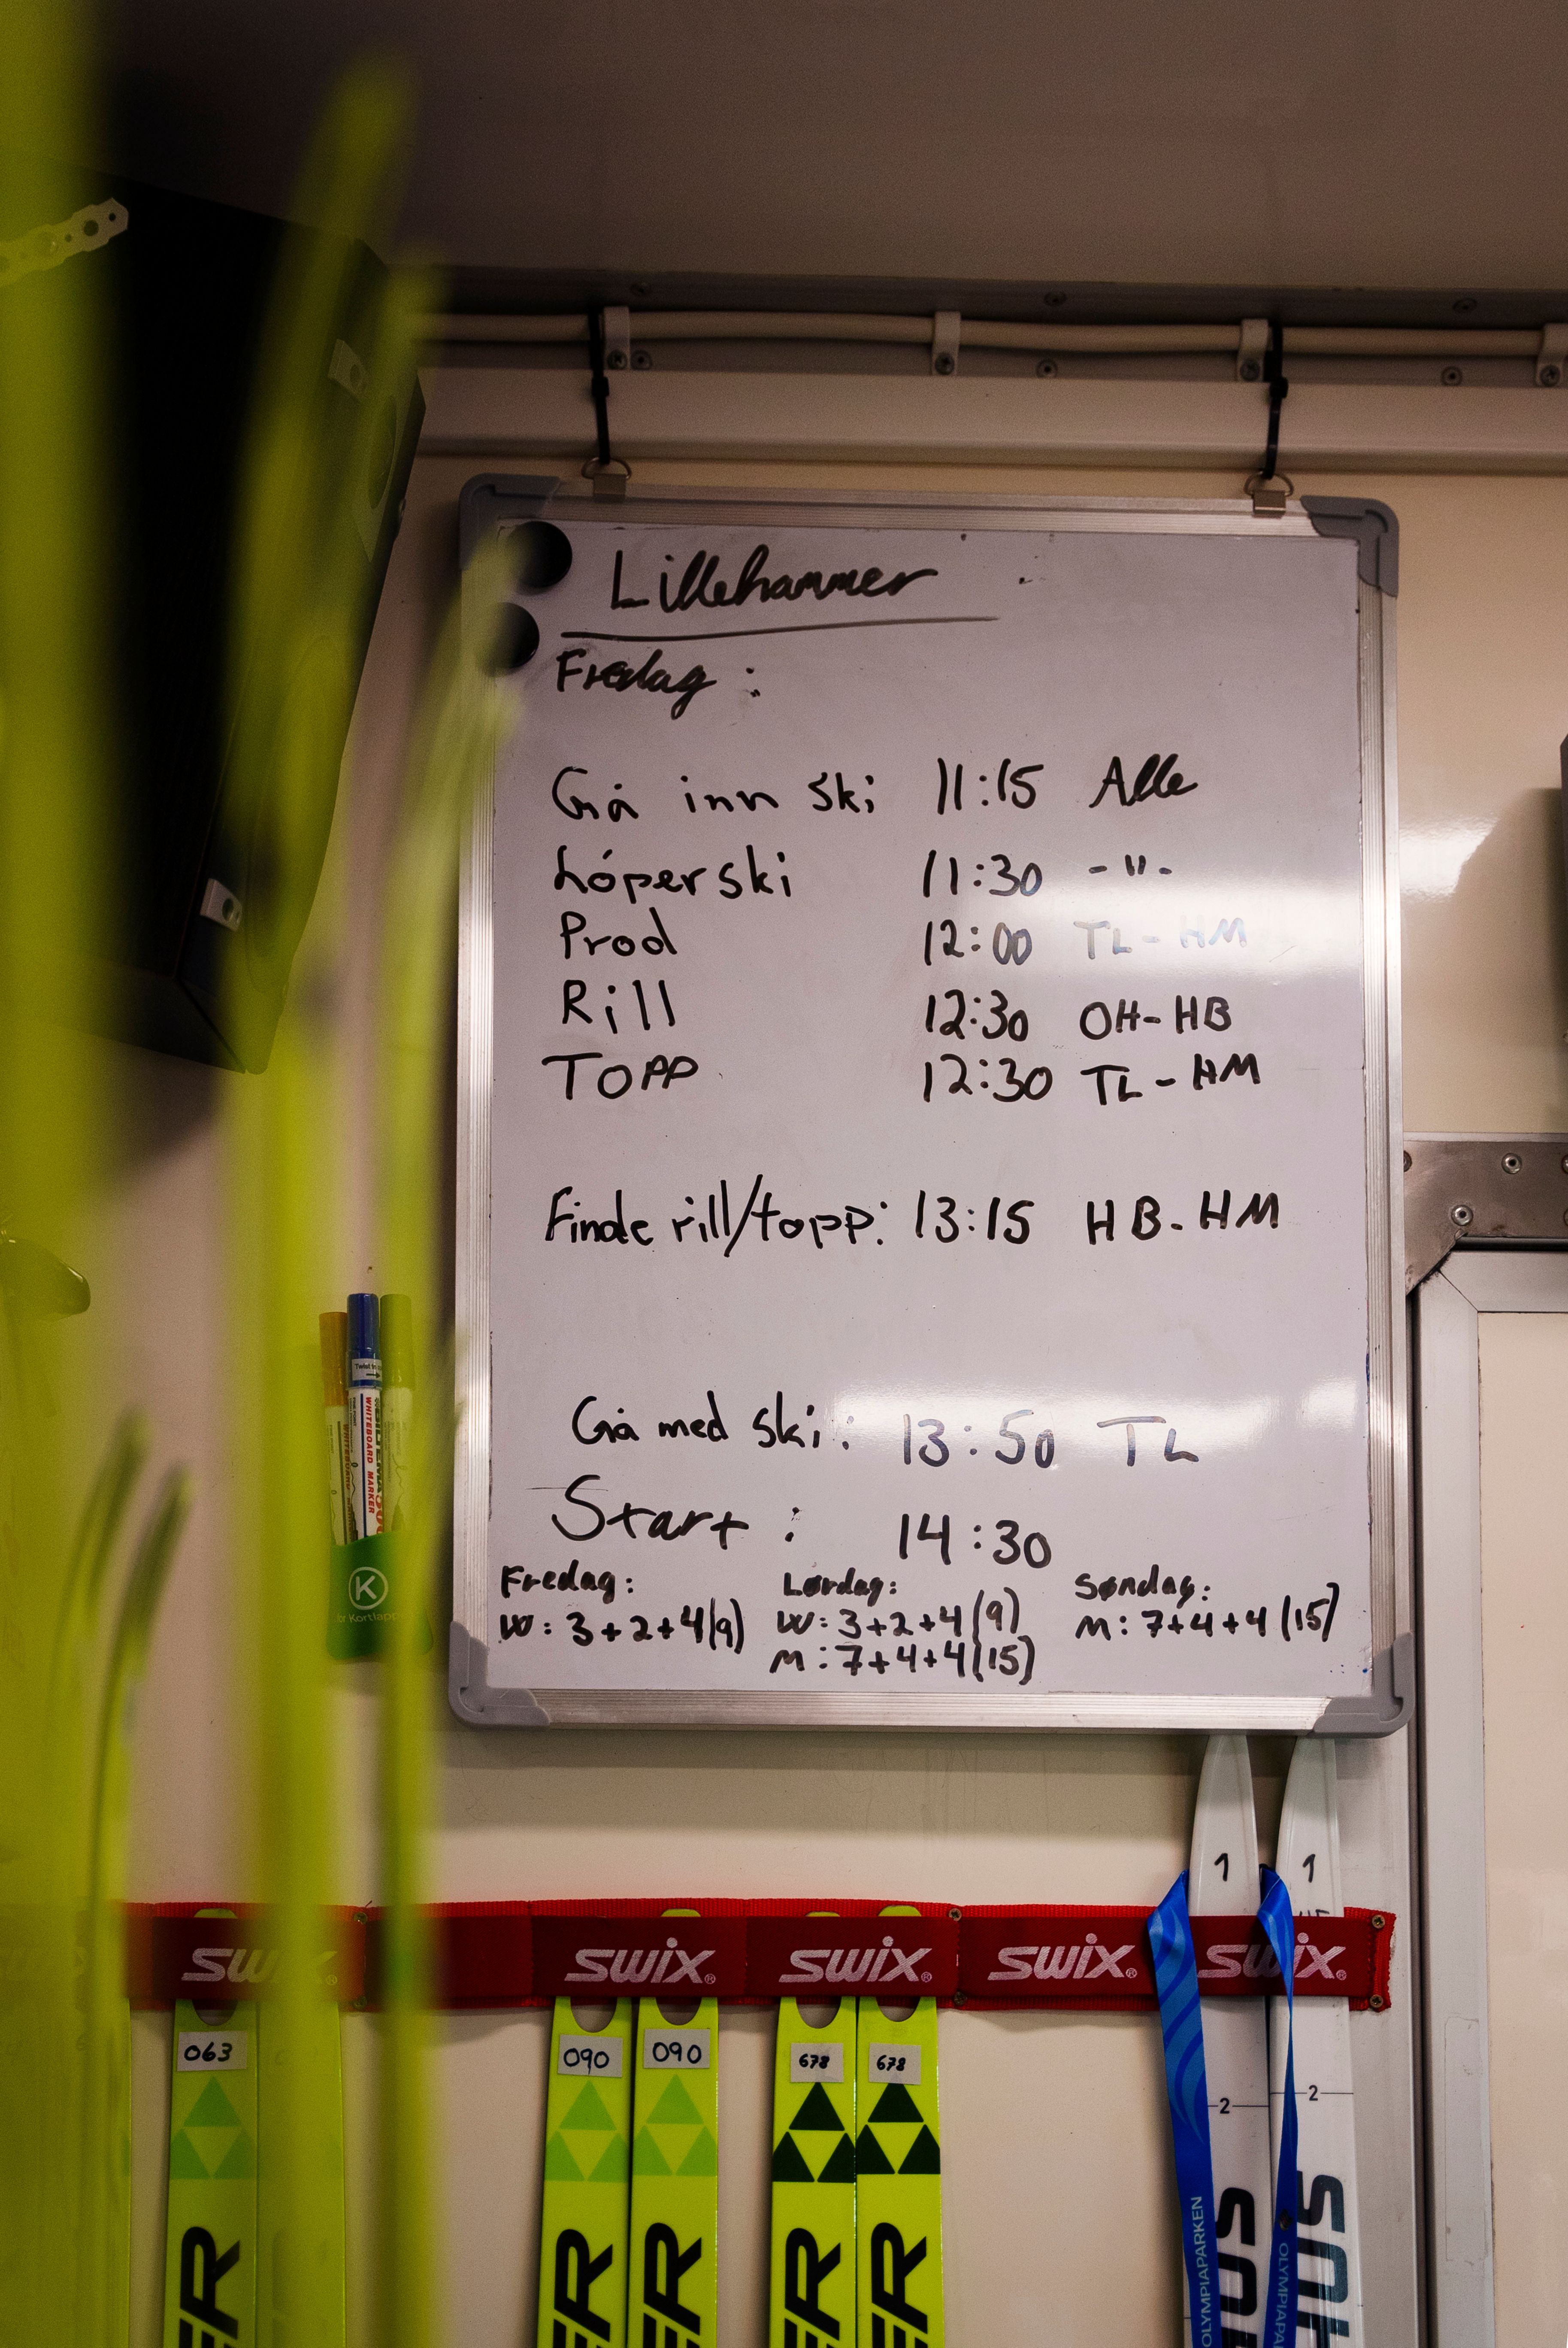 Lillehammer
Fredag :
Gå inn ski 11:15 Alle
Løper ski 11:30 - " -
Prod 12:00 TL - HM
Rill 12:30 OH - HB
TOPP 12:30 TL - HM
Finale rill/topp: 13:15 HB - HM
Gå med ski : 13:50 TL
Start : 14:30
Fredag:
W: 3+2+4(9)
Lørdag:
W: 3+2+4(9)
M: 7+4+4(15)
Søndag:
M: 7+4+4(15)
WHITEBOARD MARKER
K
1 1
swix® swix® swix® swix® swix®
063 090 090 678 678
2 2
OLYMPIAPARKEN